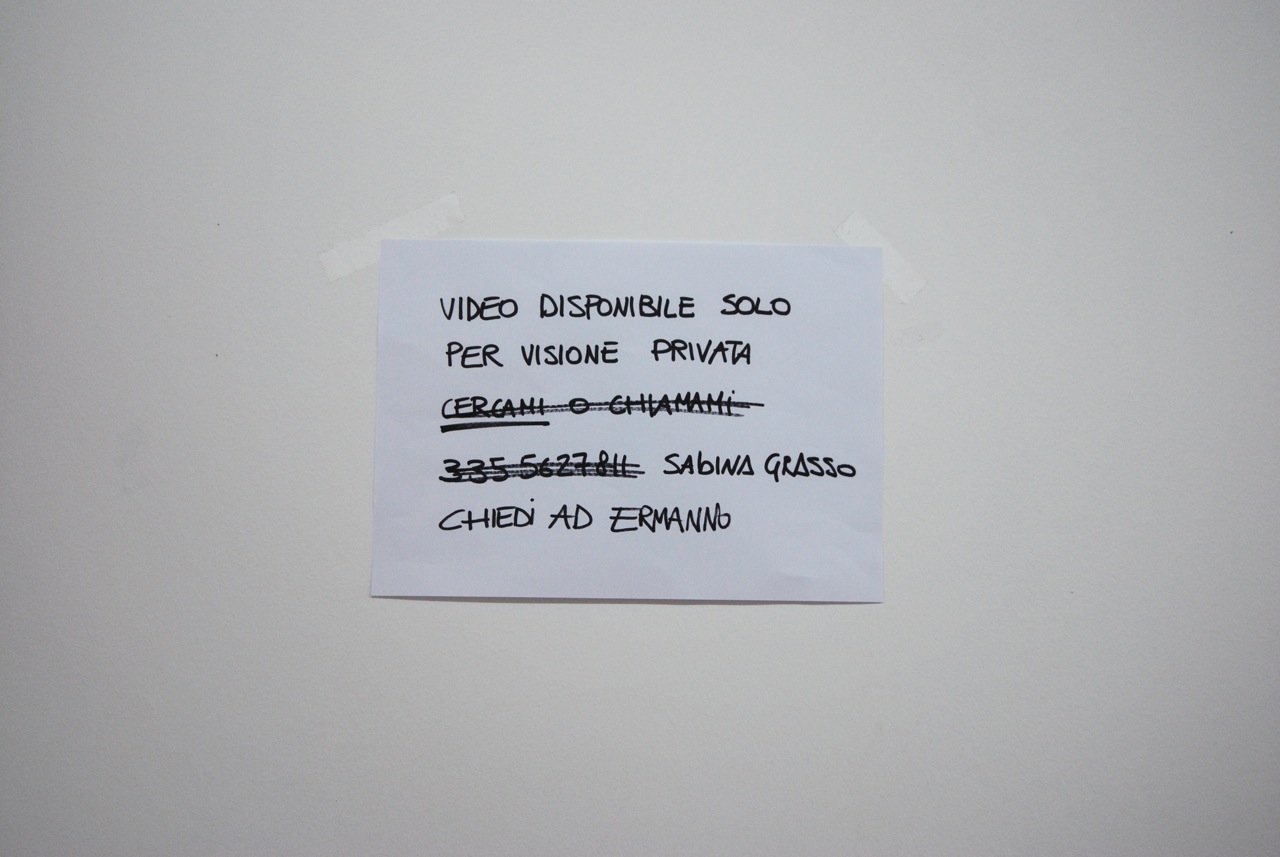 VIDEO DISPONIBILE SOLO
PER VISIONE PRIVATA
CERCAMI O CHIAMAMI
335 5627811 SABINA GRASSO
CHIEDI AD ERMANNO